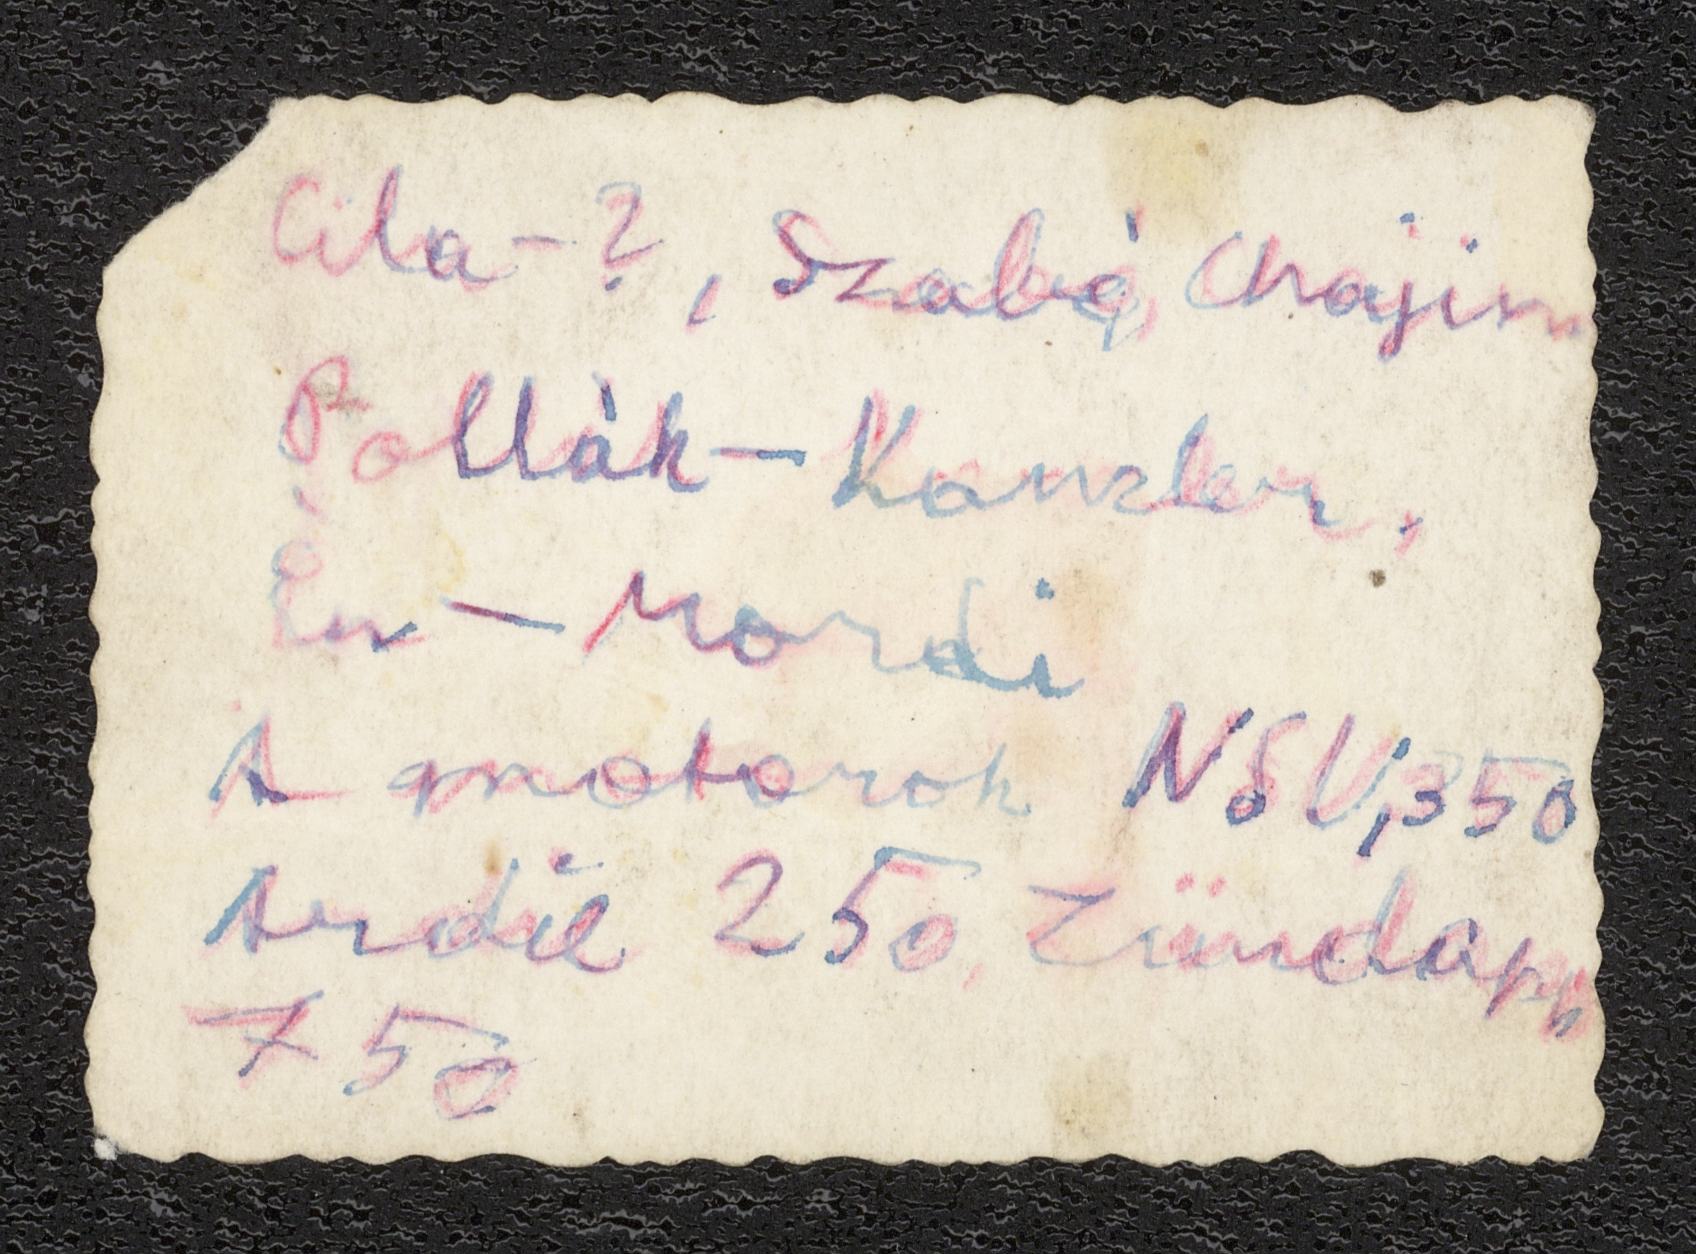 Cila - ?, Szabó, Chajim
Pollák - Kanzler,
Én - Mordi
A motorok NSU, 350
Ardie 250, Zündapp
750